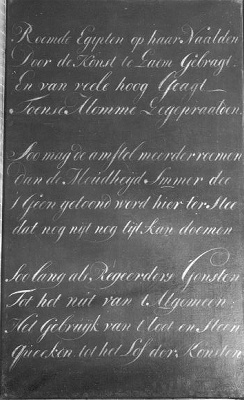 Roemde Egipten op haar Naalden
Door de Konst te Laem Gebragt
En van veele hoog Geagt
Toen Momme Degepraalden

Soo mag de amstel meerder roemen
dan de Houdheijd Immer dee
t Geen getoond word hier ter Stee
dat nog nijt nog tijt kan doemen

Soo lang als Regeerders Gonsten
Tot het nut van t Algemeen
Het Gebruijk van t Loot en Steen
Queeken tot het Lof der Konsten